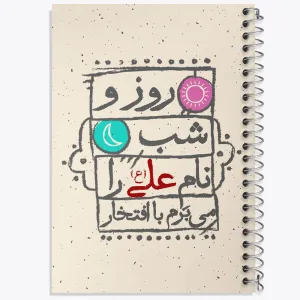 روز و
شب
نام علی (ع) را
می برم با افتخار